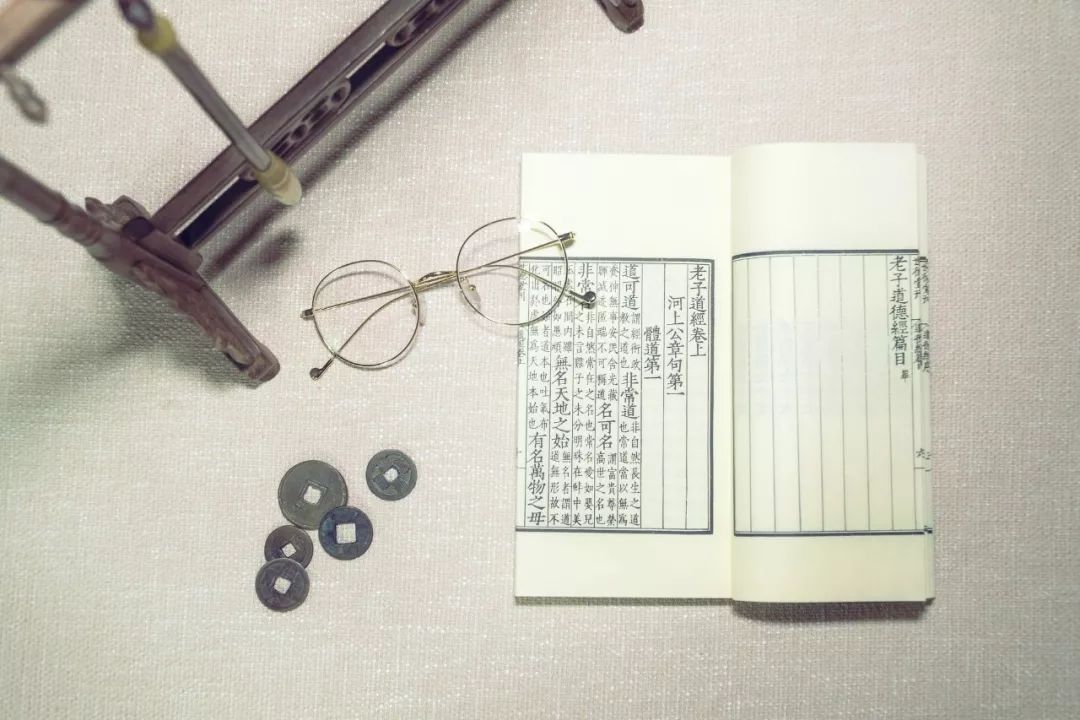 老子道德經篇目 畢
老子道經卷上
河上公章句第一
體道第一
道可道謂經術政教之道也非常道非自然長生之道也常道當以無為
養神無事安民含光藏暉滅匿端不可稱道名可名謂富貴尊榮高世之名也
非常名非自然常在之名也常名愛如嬰兒之未言雞子之未分明珠在蚌中美
石間內雖昭昭外如愚頑無名天地之始無名者謂道道無形故不
可名也始者道本也吐氣布化出於虛無為天地本始也有名萬物之母